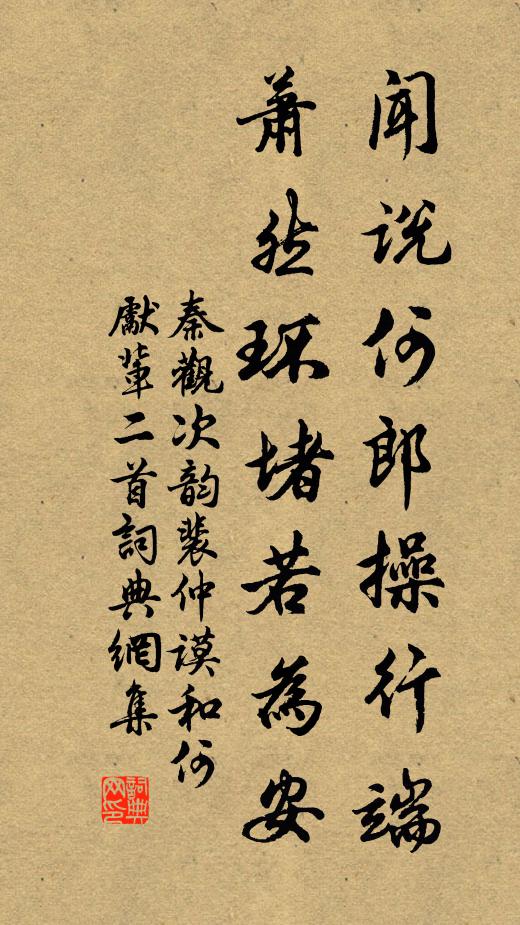 闻说何郎操行端
萧然环堵若為安
秦觀次韵裴仲谟和何
獻輩二首詞典網集
詞典网印